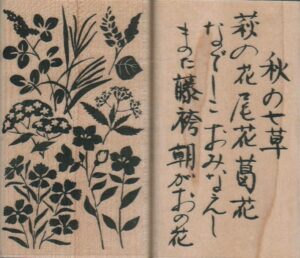 秋の七草
萩の花尾花葛花
なでしこおみなえし
また藤袴朝がおの花